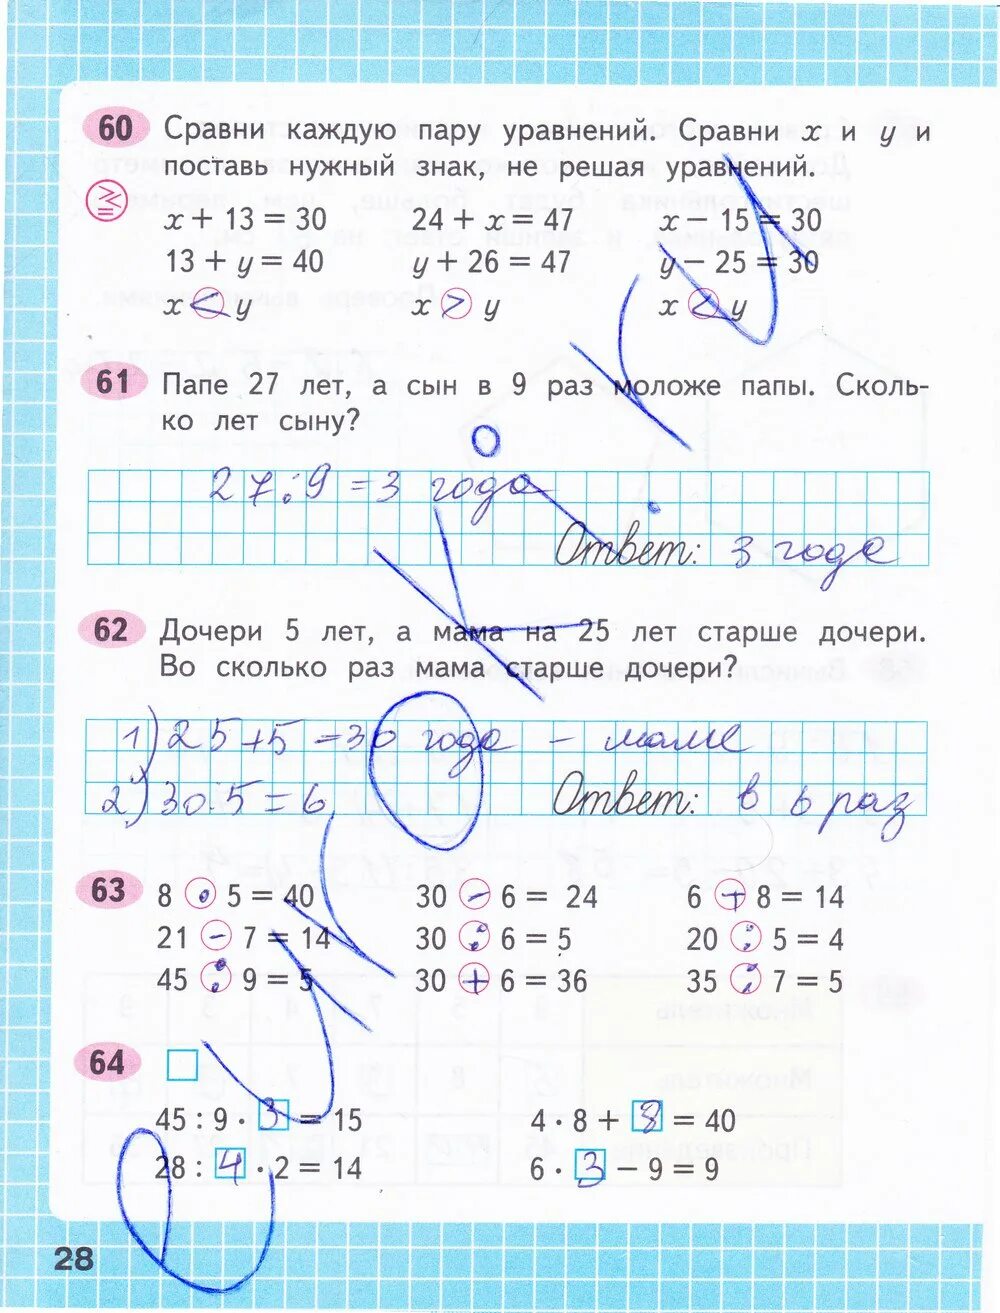 60 Сравни каждую пару уравнений. Сравни x и y и
поставь нужный знак, не решая уравнений.
x + 13 = 30 24 + x = 47 x − 15 = 30
13 + y = 40 y + 26 = 47 y − 25 = 30
x < y x > y x < y
61 Папе 27 лет, а сын в 9 раз моложе папы. Сколь-
ко лет сыну?
27 : 9 = 3 года
Ответ: 3 года
62 Дочери 5 лет, а мама на 25 лет старше дочери.
Во сколько раз мама старше дочери?
1) 25 + 5 = 30 года – маме
2) 30:5 = 6 Ответ: в 6 раз
63 8 · 5 = 40 30 − 6 = 24 6 + 8 = 14
21 − 7 = 14 30 : 6 = 5 20 : 5 = 4
45 : 9 = 5 30 + 6 = 36 35 : 7 = 5
64
45 : 9 · 3 = 15 4 · 8 + 8 = 40
28 : 4 · 2 = 14 6 · 3 − 9 = 9
28